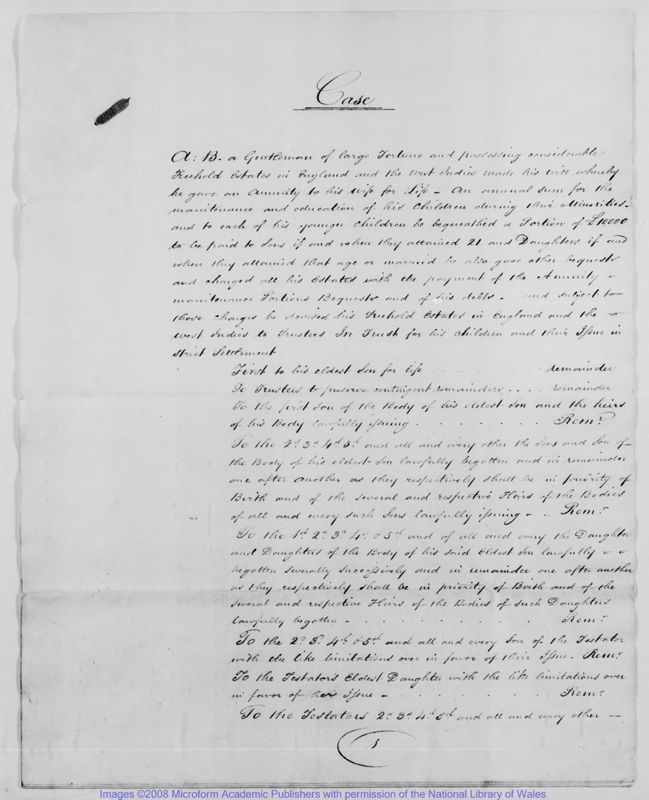 Case
A: B. a Gentleman of large Fortune and possessing considerable
Freehold Estates in England and the West Indies made his will whereby
he gave an Annuity to his wife for Life - An annual sum for the
maintenance and education of his Children during their Minorities -
and to each of his younger Children he bequeathed a Portion of £10000
to be paid to Sons if and when they attained 21 and Daughters if and
when they attained that age or married he also gave other bequests
and charged all his Estates with the payment of the Annuity -
maintenance Portions Bequests and of his debts - and subject to
those charges he devised his Freehold Estates in England and the
West Indies to Trustees In Trust for his Children and their Issue in
strict Settlement
First to his eldest Son for life . . . . remainder
To Trustees to preserve contingent remainders . . . . remainder
To the first Son of the Body of his eldest Son and the heirs
of his Body lawfully issuing . . . . . . . Remr.
To the 2d. 3d. 4th. 5th. and all and every other the Sons and Son of
the Body of his eldest Son lawfully begotten and in remainder
one after another as they respectively shall be in priority of
Birth and of the several and respective Heirs of the Bodies
of all and every such Sons lawfully issuing - . Remr.
To the 1st. 2d. 3d. 4th. & 5th. and of all and every the Daughter
and Daughters of the Body of his said Eldest Son lawfully
begotten severally successively and in remainder one after another
as they respectively shall be in priority of Birth and of the
several and respective Heirs of the Bodies of such Daughters
lawfully begotten - . . . . . . . Remr.
To the 2d. 3d. 4th. & 5th. and all and every Son of the Testator
with the like limitations over in favor of their Issue - Remr.
To the Testators Eldest Daughter with the like limitations over
in favor of her Issue - . . . . . . Remr.
To the Testators 2d. 3d. 4th. 5th. and all and every other -
1
Images ©2008 Microform Academic Publishers with permission of the National Library of Wales